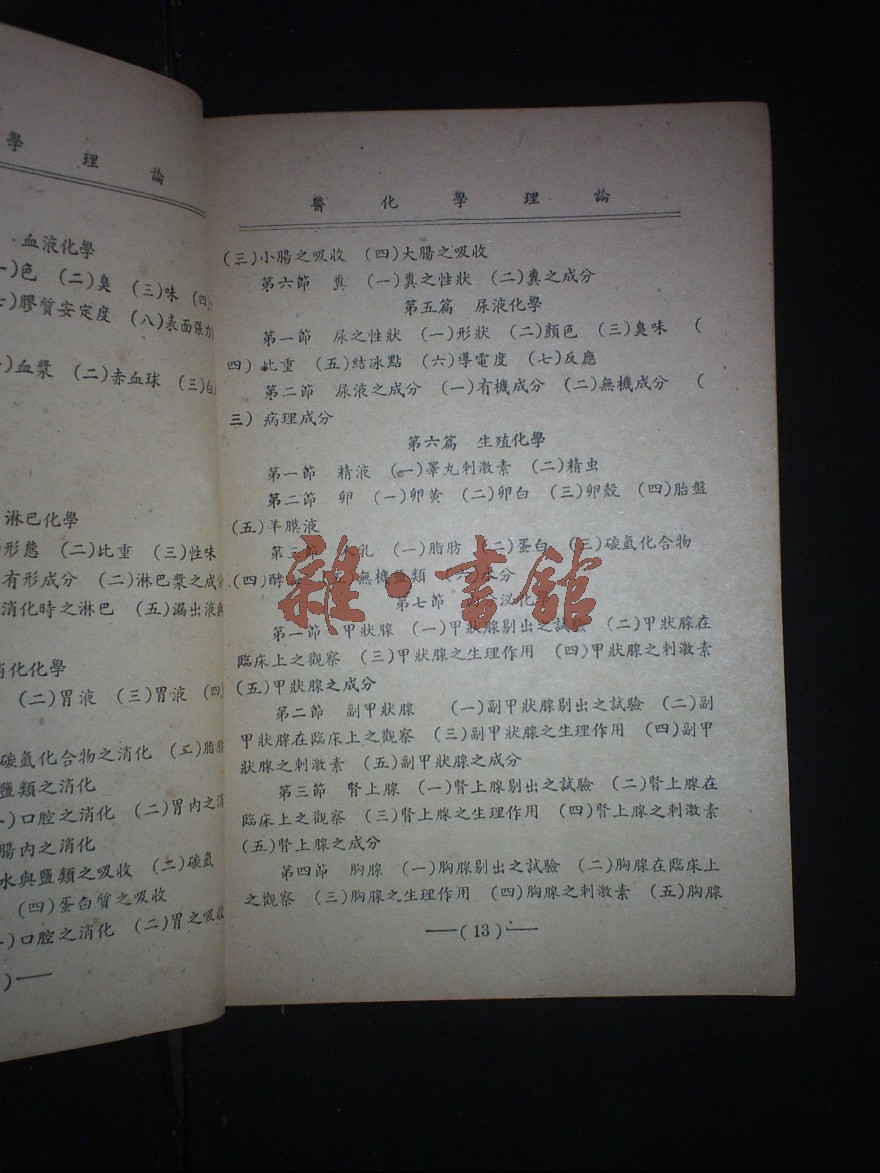 學理論
血液化學
一)色 (二)臭 (三)味 (四)
七)膠質安定度 (八)表面張力
)血漿 (二)赤血球 (三)白
淋巴化學
形態 (二)比重 (三)性味
有形成分 (二)淋巴漿之成分
消化時之淋巴 (五)漏出液與
消化化學
(二)胃液 (三)胃液 (四
碳氫化合物之消化 (二)脂肪
鹽類之消化
一)口腔之消化 (二)胃內之消
腸內之消化
水與鹽類之吸收 (二)碳氫
(四)蛋白質之吸收
一)口腔之消化 (二)胃之吸收
)—
醫化學理論
(三)小腸之吸收 (四)大腸之吸收
第六節 糞 (一)糞之性狀 (二)糞之成分
第五篇 尿液化學
第一節 尿之性狀 (一)形狀 (二)顏色 (三)臭味 (
四) 比重 (五)結冰點 (六)導電度 (七)反應
第二節 尿液之成分 (一)有機成分 (二)無機成分 (
三) 病理成分
第六篇 生殖化學
第一節 精液 (一)睪丸刺激素 (二)精虫
第二節 卵 (一)卵黃 (二)卵白 (三)卵殼 (四)胎盤
(五)羊膜液
第三節 人乳 (一)脂肪 (二)蛋白 (三)碳氫化合物
(四)酵 (五)無機鹽類 (六)水分
第七節 泌化學
第一節 甲狀腺 (一)甲狀腺剔出之試驗 (二)甲狀腺在
臨床上之觀察 (三)甲狀腺之生理作用 (四)甲狀腺之刺激素
(五)甲狀腺之成分
第二節 副甲狀腺 (一)副甲狀腺剔出之試驗 (二)副
甲狀腺在臨床上之觀察 (三)副甲狀腺之生理作用 (四)副甲
狀腺之刺激素 (五)副甲狀腺之成分
第三節 腎上腺 (一)腎上腺剔出之試驗 (二)腎上腺在
臨床上之觀察 (三)腎上腺之生理作用 (四)腎上腺之刺激素
(五)腎上腺之成分
第四節 胸腺 (一)胸腺剔出之試驗 (二)胸腺在臨床上
之觀察 (三)胸腺之生理作用 (四)胸腺之刺激素 (五)胸腺
—(13)—
雜·書館